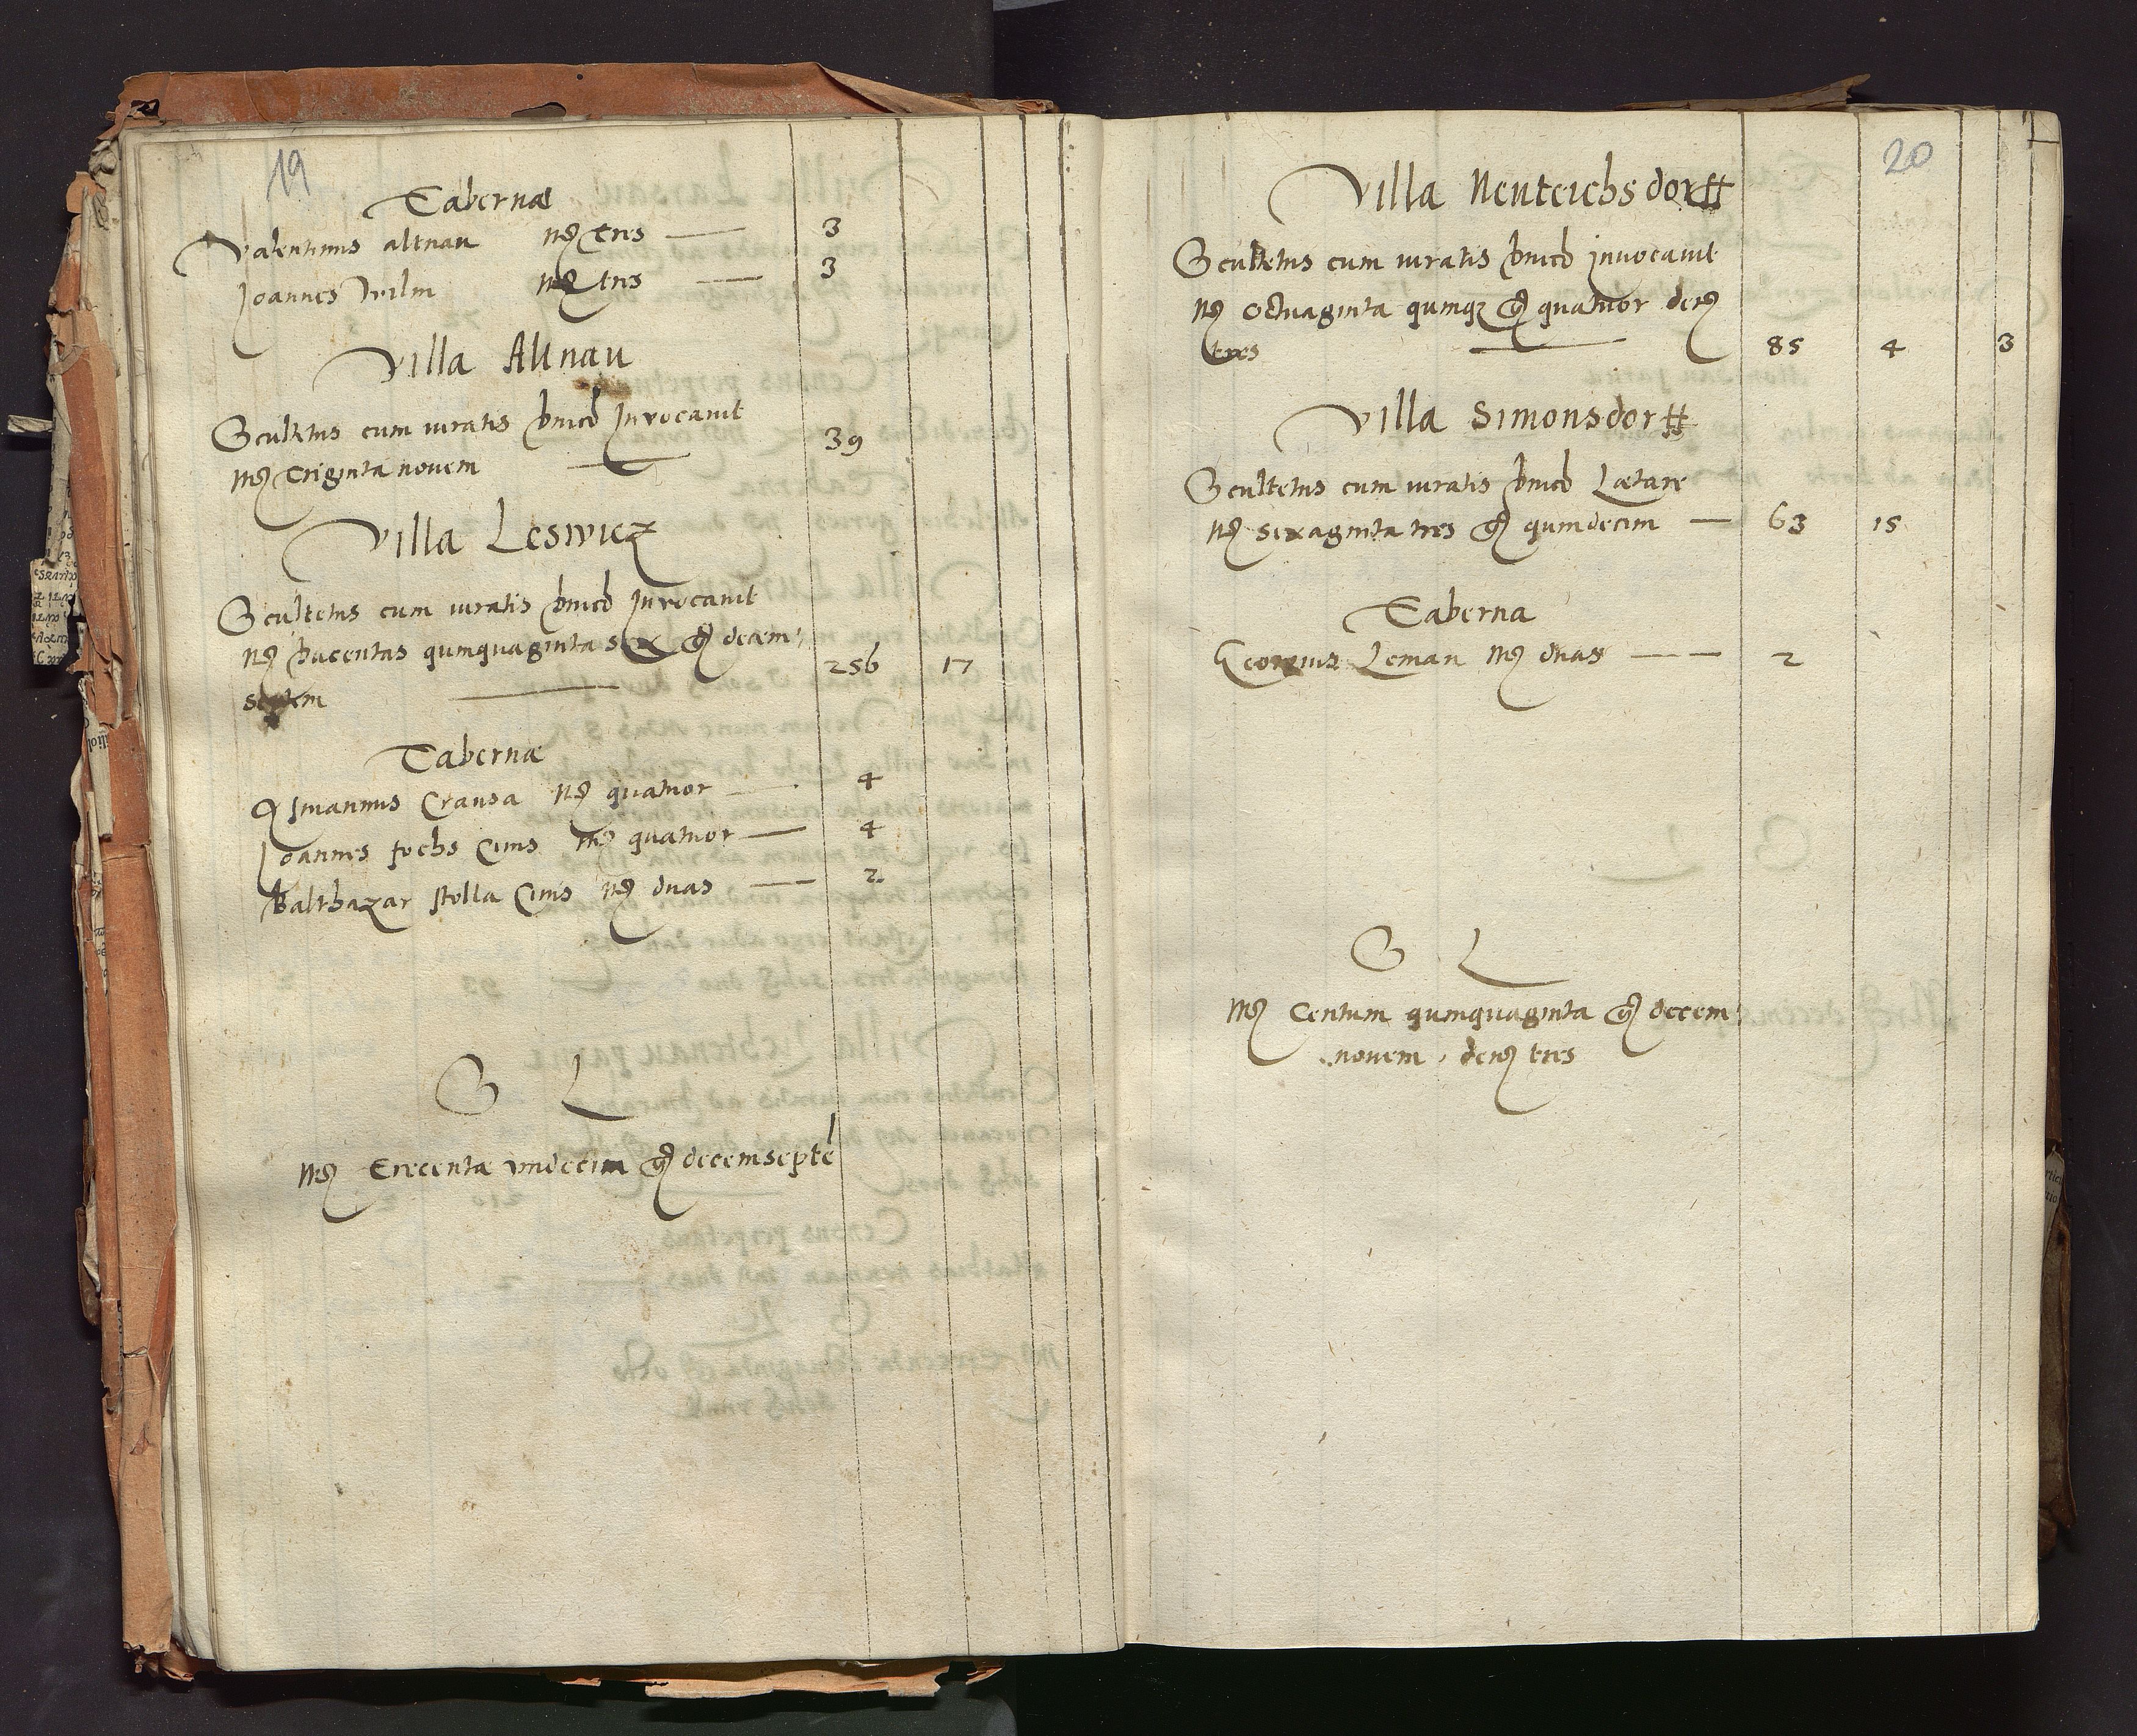 19
Tabernæ
Valentinus altnau mr͡ tres — 3
Joannes Wilm mr͡ tres — 3
Villa Altnau
Scultetus cum iuratis Invocavit
mr͡ triginta novem — 39
Villa Leswicz
Scultetus cum iuratis Invocavit
mr͡ ducentas quinquaginta sex gr͡ decem
septem — 256 17
Tabernæ
Asmannus Crausa mr͡ quatuor — 4
Joannes fochs Civis mr͡ quatuor — 4
Balthazar stolla Civis mr͡ duas — 2
S L
mr͡ Trecentæ undecim gr͡ decemseptē
20
Villa Neuteichsdorff
Scultetus cum iuratis Invocavit
mr͡ octuaginta quinqȝ gr͡ quatuor den͡
tres — 85 4 3
Villa Simonsdorff
Scultetus cum iuratis Lætare
mr͡ sexaginta tres gr͡ quindecim — 63 15
Taberna
Georgius Leman mr͡ duas — 2
S L
mr͡ Centum quinquaginta gr͡ decem
novem, den͡ tres